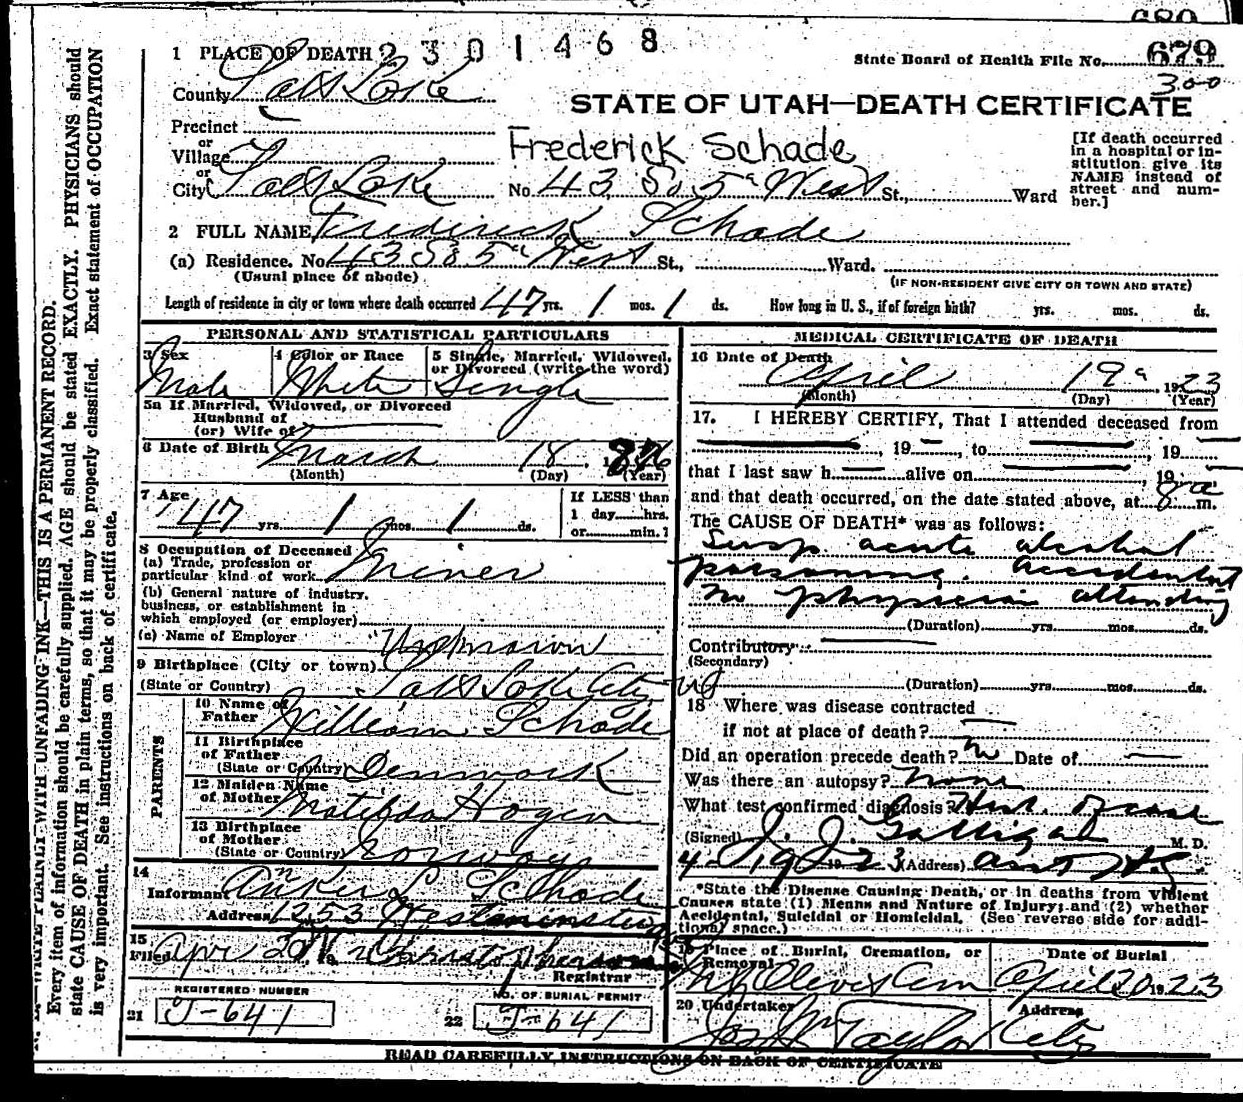 680
1 PLACE OF DEATH 2301468
State Board of Health File No. 679
300
County Salt Lake
STATE OF UTAH—DEATH CERTIFICATE
Precinct
or
Village
or
Frederick Schade
[If death occurred in a hospital or institution give its NAME instead of street and number.]
City Salt Lake No. 43 So 5th West St., Ward
2 FULL NAME Frederick Schade
(a) Residence. No 43 So 5th West St., Ward.
(Usual place of abode) (IF NON-RESIDENT GIVE CITY OR TOWN AND STATE)
Length of residence in city or town where death occurred 47 yrs. 1 mos. 1 ds. How long in U. S., if of foreign birth? yrs. mos. ds.
PERSONAL AND STATISTICAL PARTICULARS
3 Sex Male
4 Color or Race White
5 Single, Married, Widowed, or Divorced (write the word) Single
5a If Married, Widowed, or Divorced
Husband of
(or) Wife of
6 Date of Birth March 18, 1876
(Month) (Day) (Year)
7 Age 47 yrs. 1 mos. 1 ds.
If LESS than
1 day hrs.
or min. ?
8 Occupation of Deceased
(a) Trade, profession or
particular kind of work Miner
(b) General nature of industry,
business, or establishment in
which employed (or employer)
(c) Name of Employer Unknown
9 Birthplace (City or town)
(State or Country) Salt Lake City
PARENTS
10 Name of
Father William Schade
11 Birthplace
of Father
(State or Country) Denmark
12 Maiden Name
of Mother Matilda Hogen
13 Birthplace
of Mother
(State or Country) Norway
14
Informant Schade
Address 1253 Westminster
15
Filed Apr 20
Registrar
REGISTERED NUMBER
21 J-641
NO. OF BURIAL PERMIT
22 J-641
MEDICAL CERTIFICATE OF DEATH
16 Date of Death
April 19, 1923
(Month) (Day) (Year)
17. I HEREBY CERTIFY, That I attended deceased from
, 19 , to , 19
that I last saw h alive on , 19
and that death occurred, on the date stated above, at 8 a m.
The CAUSE OF DEATH* was as follows:
Susp. acute alcohol
poisoning. Accident
no physician attending
(Duration) yrs. mos. ds.
Contributory
(Secondary)
(Duration) yrs. mos. ds.
18 Where was disease contracted
if not at place of death?
Did an operation precede death? no Date of
Was there an autopsy? none
What test confirmed diagnosis? Hist. of case
(Signed) J. J. Galligan M. D.
4-19 1923 (Address)
*State the Disease Causing Death, or in deaths from Violent
Causes state (1) Means and Nature of Injury; and (2) whether
Accidental, Suicidal or Homicidal. (See reverse side for additional space.)
19 Place of Burial, Cremation, or
Removal
Mt Olivet Cem
Date of Burial
April 20 1923
20 Undertaker
Jos Wm Taylor
Address
City
READ CAREFULLY INSTRUCTIONS ON BACK OF CERTIFICATE
WRITE PLAINLY WITH UNFADING INK—THIS IS A PERMANENT RECORD.
Every item of information should be carefully supplied. AGE should be stated EXACTLY. PHYSICIANS should
state CAUSE OF DEATH in plain terms, so that it may be properly classified. Exact statement of OCCUPATION
is very important. See instructions on back of certificate.